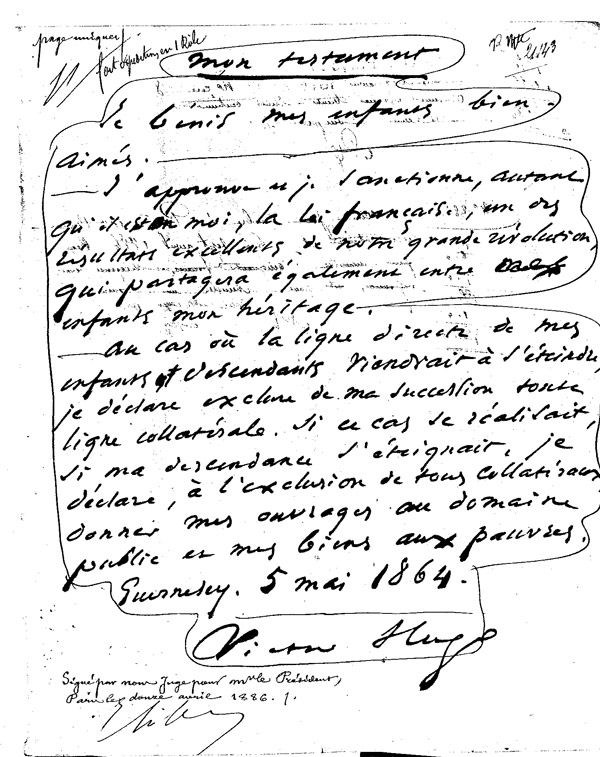 page unique
fort expédition, en 1 Rôle
mon testament
Je bénis mes enfants bien-
aimés.
— J'approuve et je sanctionne, autant
qu'il est en moi, la loi française, un des
résultats excellents de notre grande révolution,
qui partagera également entre mes
enfants mon héritage.
— Au cas où la ligne directe de mes
enfants et descendants viendrait à s'éteindre,
je déclare exclure de ma succession toute
ligne collatérale. Si ce cas se réalisait,
si ma descendance s'éteignait, je
déclare, à l'exclusion de tous collatéraux,
donner mes ouvrages au domaine
public et mes biens aux pauvres.
Guernesey. 5 mai 1864.
Victor Hugo
Signé par nous Juge pour mr le Président,
Paris le douze avril 1886. /.